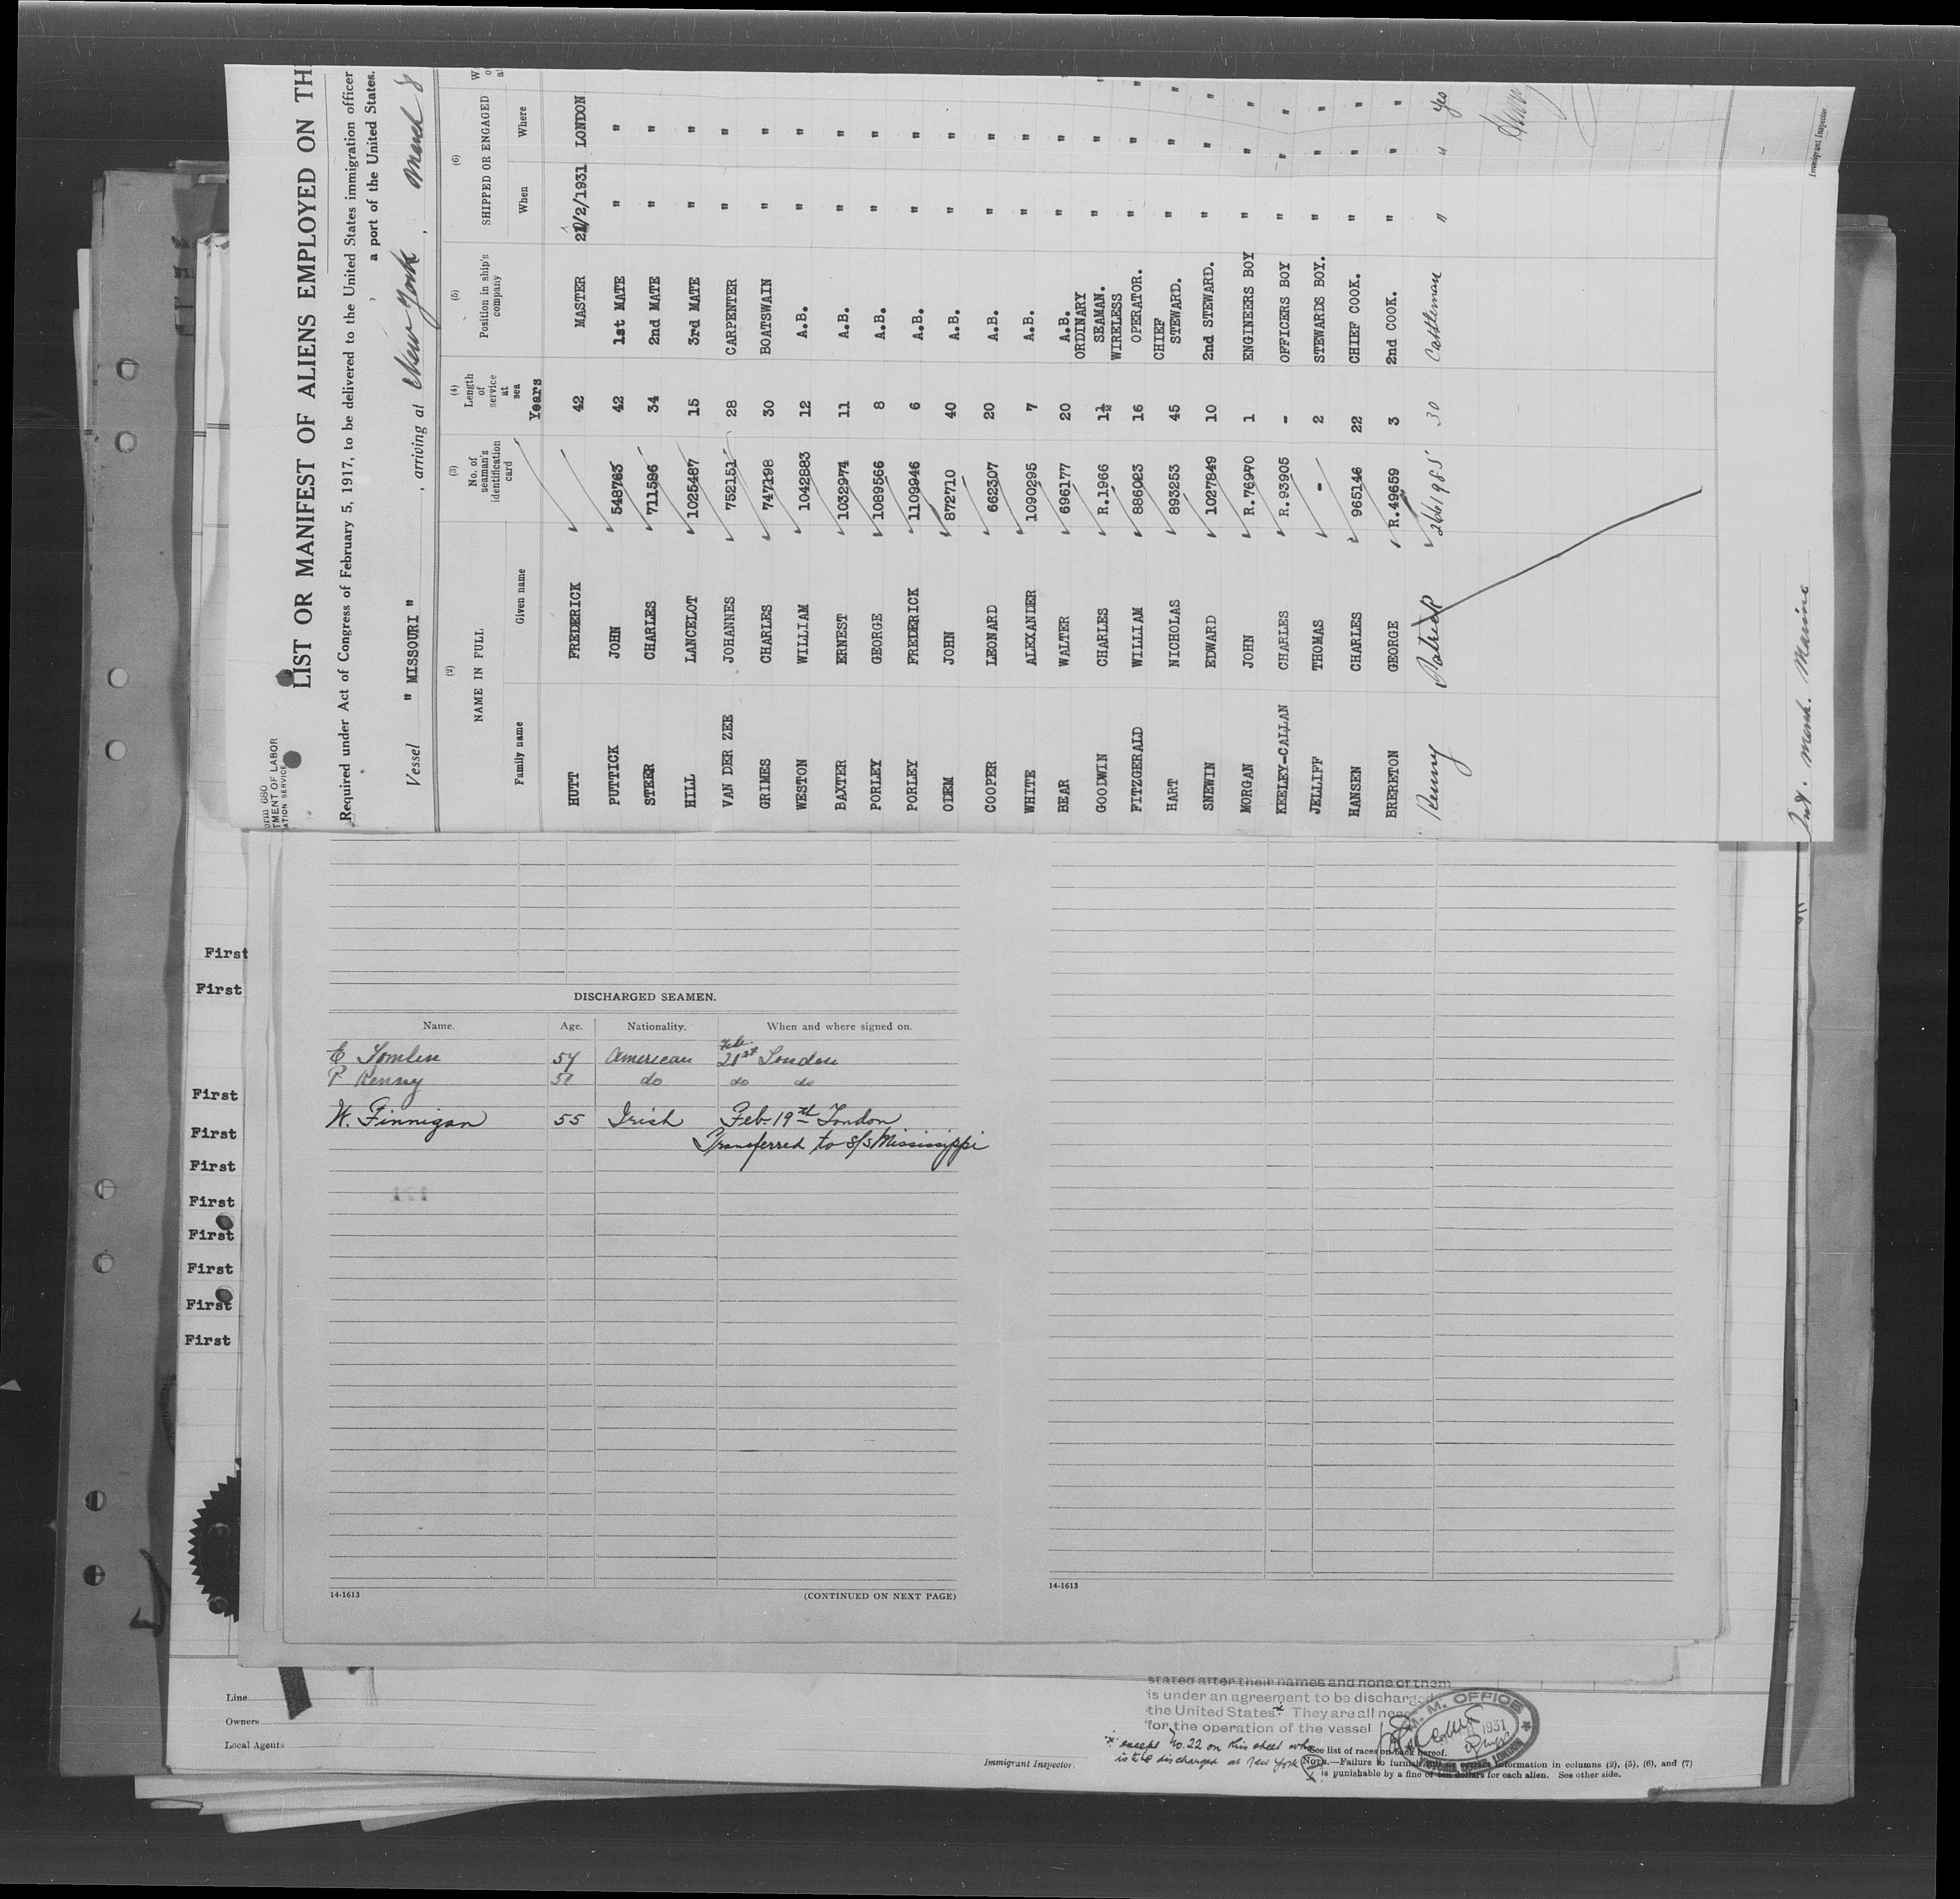 Form 680
LIST OR MANIFEST OF ALIENS EMPLOYED ON TH
Required under Act of Congress of February 5, 1917, to be delivered to the United States immigration officer
a port of the United States.
Vessel " MISSOURI " , arriving at New York , March 8
(2) (3) (4) (5) (6)
NAME IN FULL No. of seaman's identification card Length of service at sea Position in ship's company SHIPPED OR ENGAGED
Family name Given name Years When Where
HUTT FREDERICK 42 MASTER /2/1931 LONDON
PUTTICK JOHN 548763 42 1st MATE " "
STEER CHARLES 711586 34 2nd MATE " "
HILL LANCELOT 1025487 15 3rd MATE " "
VAN DER ZEE JOHANNES 752151 28 CARPENTER " "
GRIMES CHARLES 747198 30 BOATSWAIN " "
WESTON WILLIAM 1042883 12 A.B. " "
BAXTER ERNEST 1032974 11 A.B. " "
PORLEY GEORGE 1089566 8 A.B. " "
PORLEY FREDERICK 1109946 6 A.B. " "
ODEM JOHN 872710 40 A.B. " "
COOPER LEONARD 662307 20 A.B. " "
WHITE ALEXANDER 1090295 7 A.B. " "
BEAR WALTER 696177 20 A.B. " "
GOODWIN CHARLES R.1966 1½ ORDINARY SEAMAN. " " "
FITZGERALD WILLIAM 886023 16 WIRELESS OPERATOR. " " "
HART NICHOLAS 893253 45 CHIEF STEWARD. " " "
SNEWIN EDWARD 1027849 10 2nd STEWARD. " " "
MORGAN JOHN R.76970 1 ENGINEERS BOY " " "
KEELEY-CALLAN CHARLES R.93905 - OFFICERS BOY " " "
JELLIFF THOMAS - 2 STEWARDS BOY. " " "
HANSEN CHARLES 965146 22 CHIEF COOK. " " "
BRERETON GEORGE R.49659 3 2nd COOK. " " "
Kenny Patrick 266198 30 Cattleman " " Yes
Int. Merch. Marine
Immigrant Inspector
First
First
First
First
First
First
First
First
First
First
DISCHARGED SEAMEN.
Name. Age. Nationality. When and where signed on.
E Tomlin 54 American Feb. 21st London
P Kenny 51 do do do
W. Finnigan 55 Irish Feb 19th London
Transferred to S/S Mississippi
121
14-1613 (CONTINUED ON NEXT PAGE)
14-1613
Line
Owners
Local Agents
Immigrant Inspector.
stated after their names and none of them
is under an agreement to be discharged
the United States* They are all nec
for the operation of the vessel
* except No. 22 on this sheet who
is to be discharged at New York
See list of races on back hereof.
NOTE.—Failure to furnish information in columns (2), (5), (6), and (7)
is punishable by a fine of ten dollars for each alien. See other side.
M. M. OFFICE
1931
LONDON